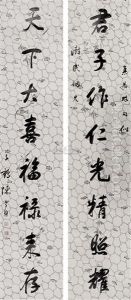 君子作仁光精照耀
天下大喜福禄来存